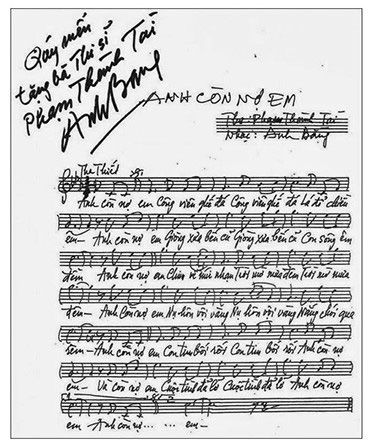 Qúy mến
tặng bà Thi sĩ
Phạm Thành Tài
Anh Bằng
ANH CÒN NỢ EM
Thơ: Phạm Thành Tài
Nhạc: Anh Bằng
Tha Thiết
Anh còn nợ em Công viên ghế đá Công viên ghế đá lá đổ chiều
êm - Anh còn nợ em Giòng xưa bến cũ Giòng xưa bến cũ Con sông êm
đềm - Anh còn nợ em Chim về núi nhạn Trời mờ mưa đêm Trời mờ mưa
đêm - Anh còn nợ em Nụ hôn vội vàng Nụ hôn vội vàng Nắng chói qua
rèm - Anh còn nợ em Con tim bối rối Con tim bối rối Anh còn nợ
em - Và còn nợ em Cuộc tình đã lỡ Cuộc tình đã lỡ Anh còn nợ
em Anh còn nợ ... ... em -